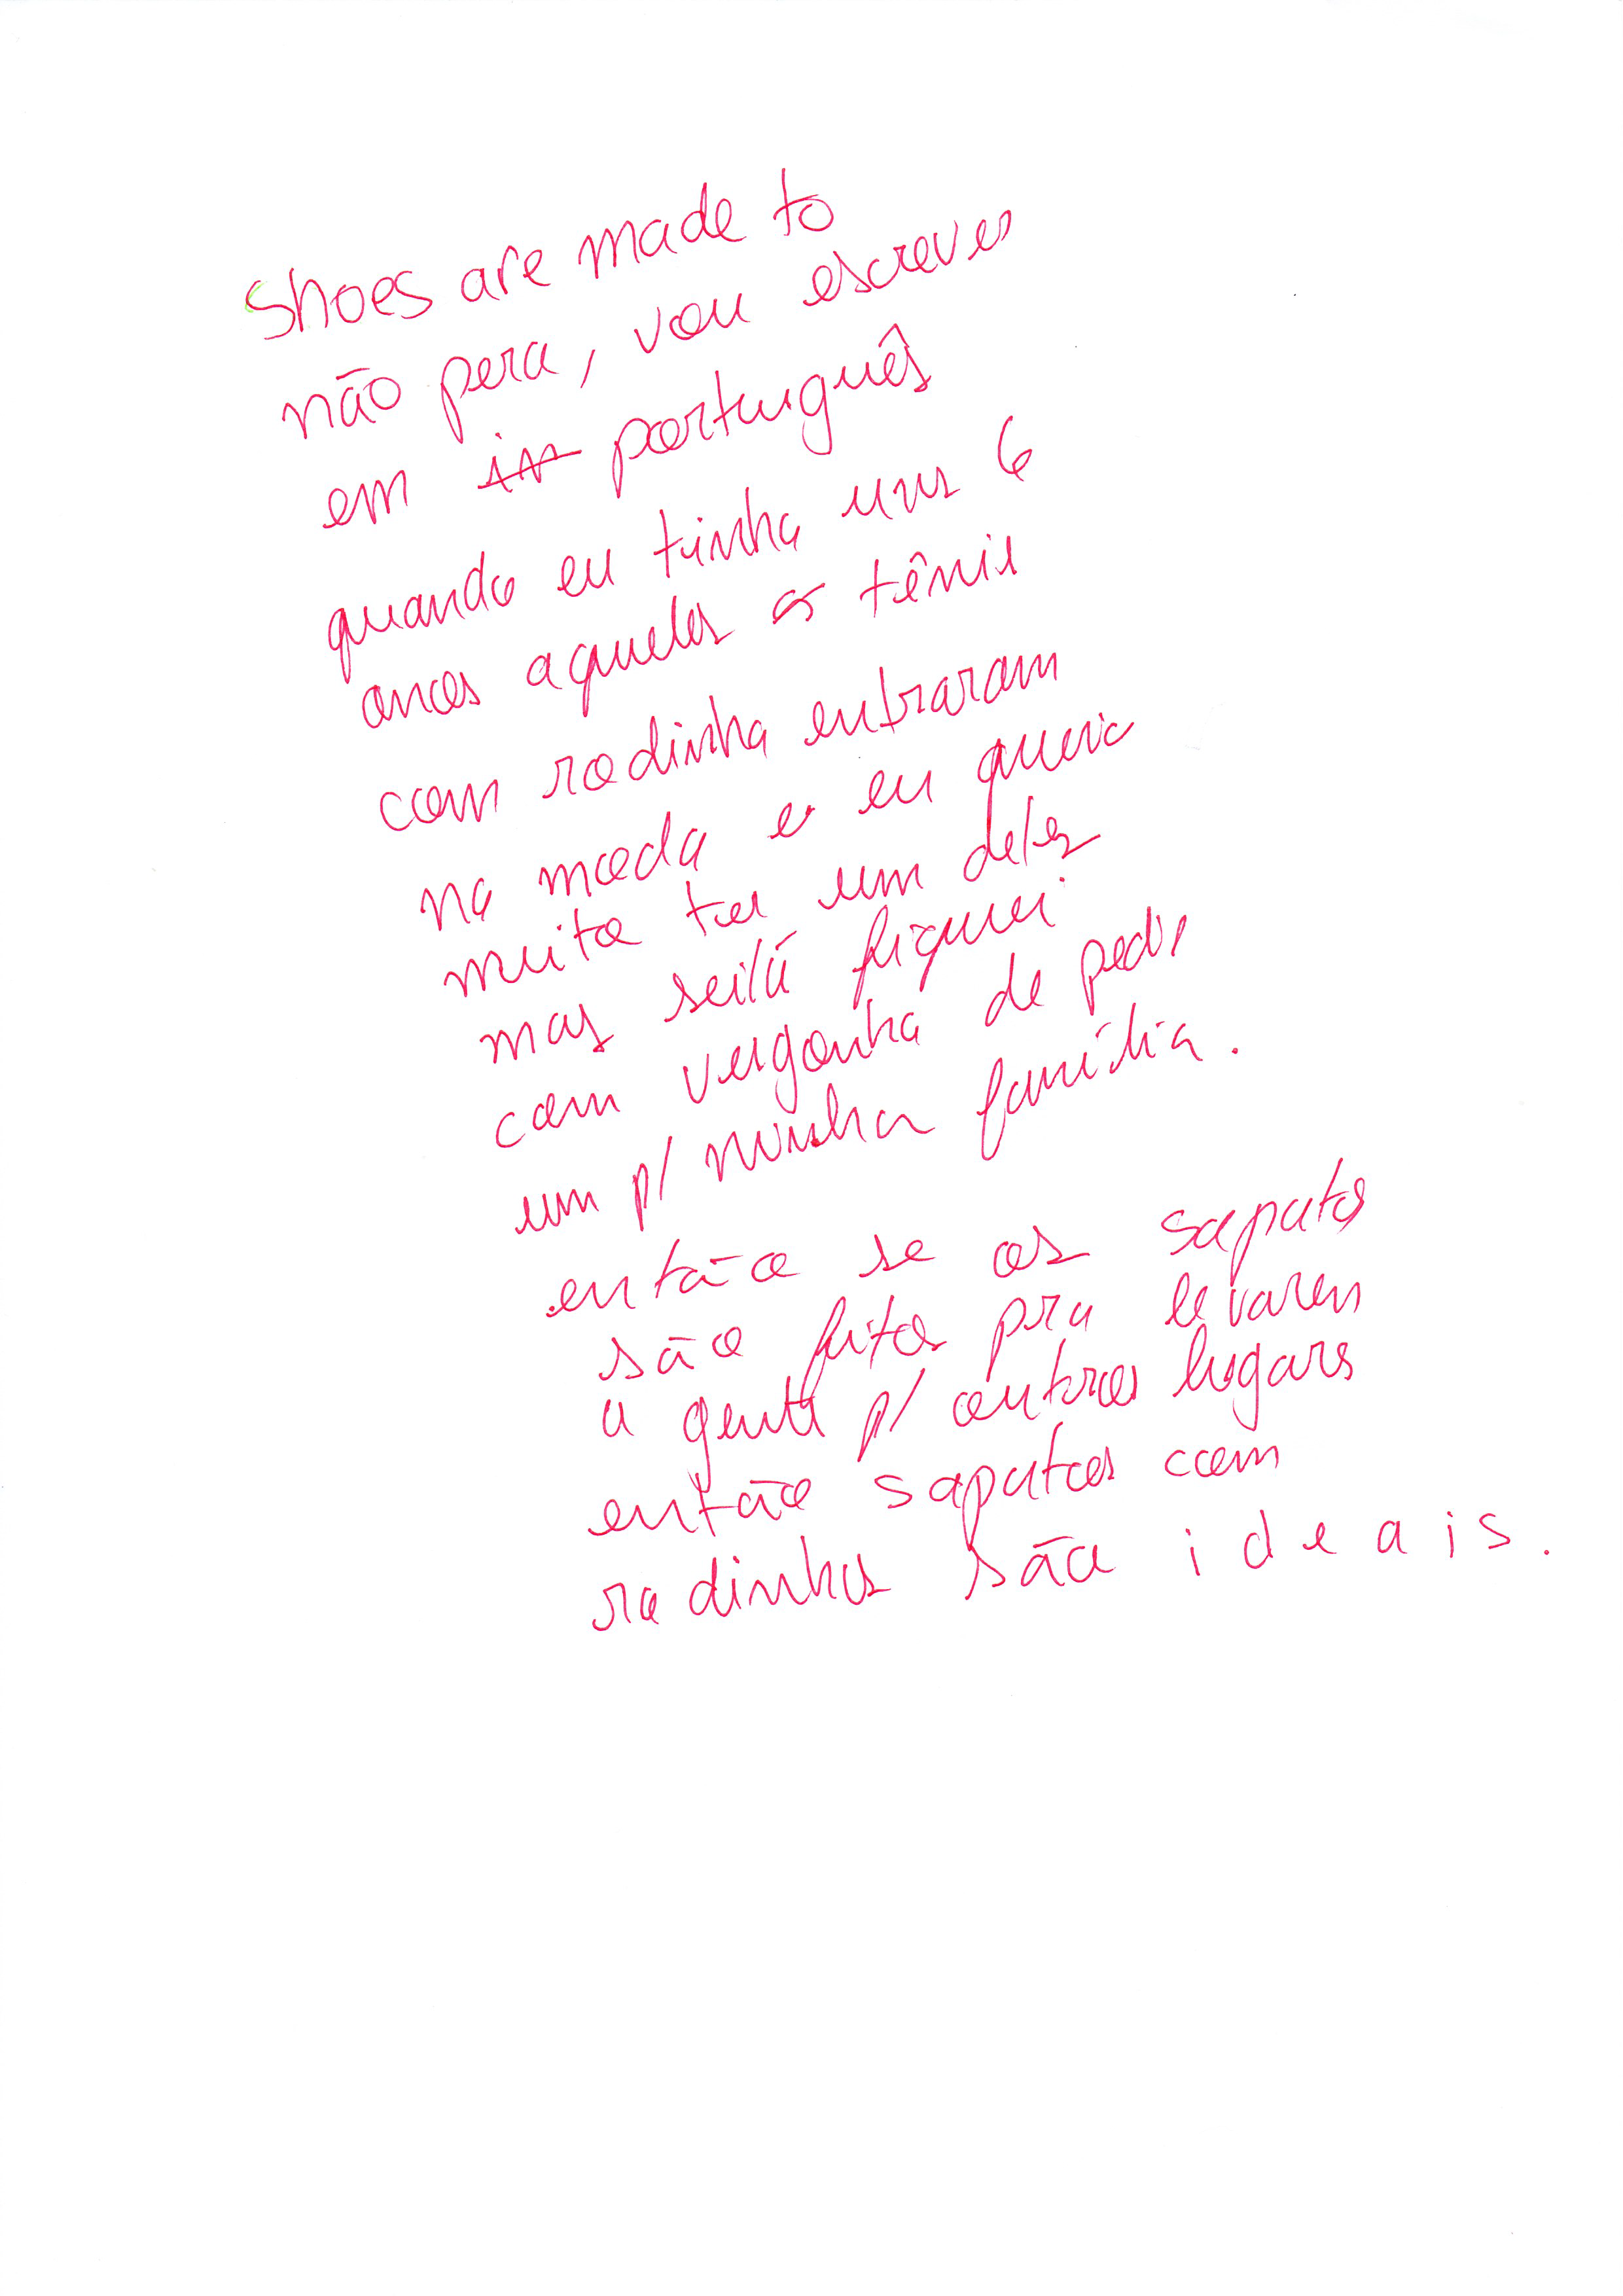 shoes are made to
não pera, vou escrever
em in português
quando eu tinha uns 6
anos aqueles os tênis
com rodinha entraram
na moda e eu queria
muito ter um deles
mas seilá fiquei
com vergonha de pedir
um p/ minha família.
então se os sapatos
são feitos pra levarem
a gente p/ outros lugares
então sapatos com
rodinhas são i d e a i s.